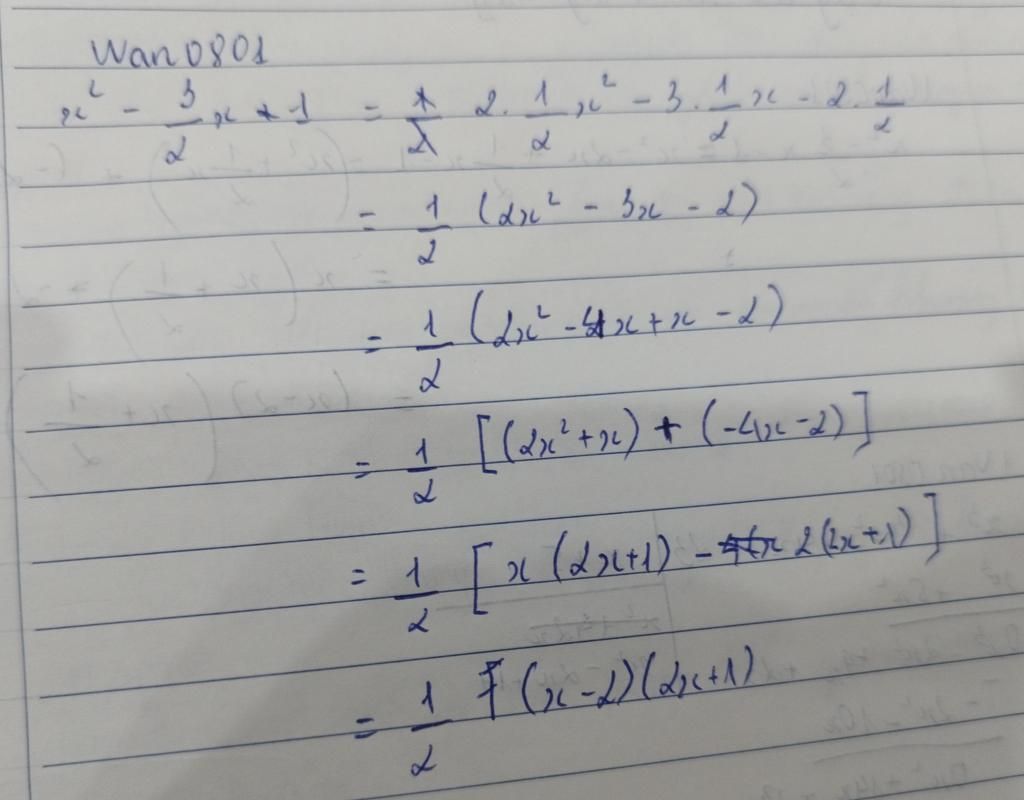 Wan0801
x² - 3/2 x - 1 = 2 . 1/2 x² - 3 . 1/2 x - 2 . 1/2
= 1/2 (2x² - 3x - 2)
= 1/2 (2x² - 4x + x - 2)
= 1/2 [(2x² + x) + (-4x - 2)]
= 1/2 [x (2x+1) - 2 (2x+1)]
= 1/2 (x - 2)(2x+1)